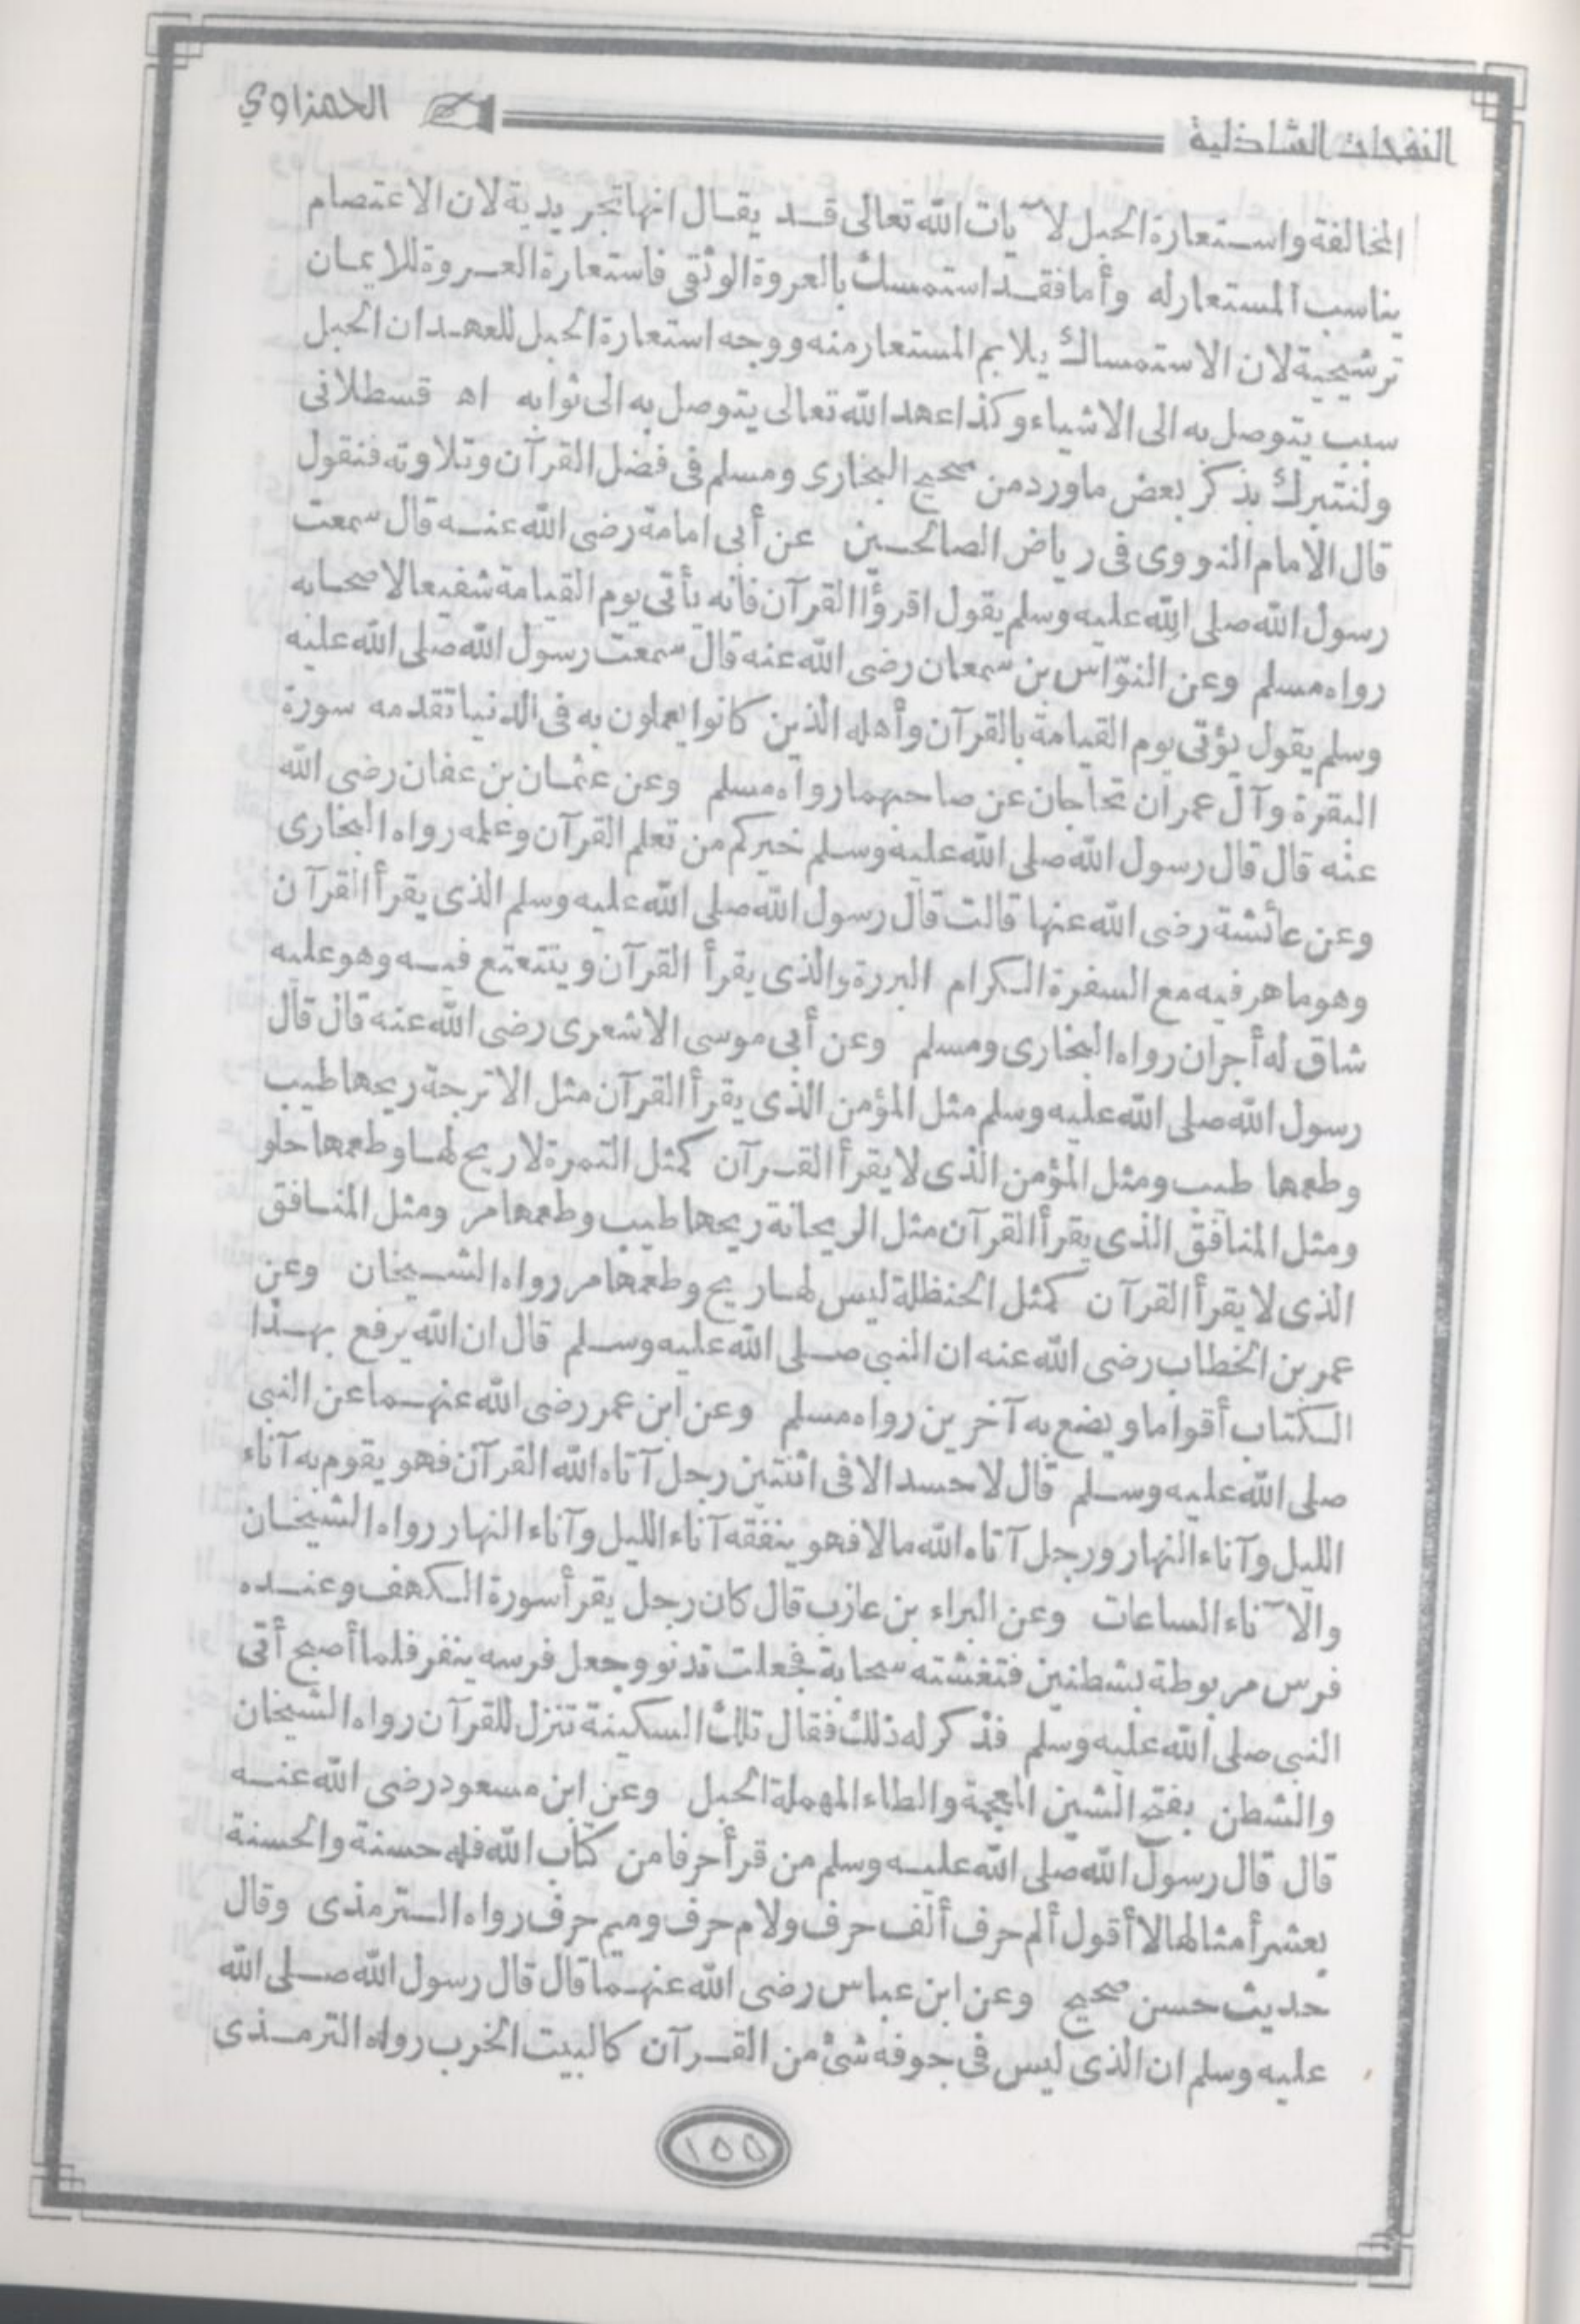 النفحات الشاذلية
الحمزاوي
المخالفة واستعارة الحبل لآيات الله تعالى قد يقال انها تجريدية لان الاعتصام
يناسب المستعار له وأما فقد استمسك بالعروة الوثقى فاستعارة العروة للايمان
ترشيحية لان الاستمساك يلايم المستعار منه ووجه استعارة الحبل للعهد ان الحبل
سبب يتوصل به الى الاشياء وكذا عهد الله تعالى يتوصل به الى ثوابه اه قسطلانى
ولنتبرك بذكر بعض ما ورد من صحيح البخارى ومسلم فى فضل القرآن وتلاوته فنقول
قال الامام النووى فى رياض الصالحين عن أبى امامة رضى الله عنه قال سمعت
رسول الله صلى الله عليه وسلم يقول اقرؤا القرآن فانه يأتى يوم القيامة شفيعا لاصحابه
رواه مسلم وعن النوّاس بن سمعان رضى الله عنه قال سمعت رسول الله صلى الله عليه
وسلم يقول يؤتى يوم القيامة بالقرآن وأهله الذين كانوا يعملون به فى الدنيا تقدمه سورة
البقرة وآل عمران تحاجان عن صاحبهما رواه مسلم وعن عثمان بن عفان رضى الله
عنه قال قال رسول الله صلى الله عليه وسلم خيركم من تعلم القرآن وعلمه رواه البخارى
وعن عائشة رضى الله عنها قالت قال رسول الله صلى الله عليه وسلم الذى يقرأ القرآن
وهو ماهر فيه مع السفرة الكرام البررة والذى يقرأ القرآن ويتتعتع فيه وهو عليه
شاق له أجران رواه البخارى ومسلم وعن أبى موسى الاشعرى رضى الله عنه قال قال
رسول الله صلى الله عليه وسلم مثل المؤمن الذى يقرأ القرآن مثل الاترجة ريحها طيب
وطعمها طيب ومثل المؤمن الذى لا يقرأ القرآن كمثل التمرة لا ريح لها وطعمها حلو
ومثل المنافق الذى يقرأ القرآن مثل الريحانة ريحها طيب وطعمها مر ومثل المنافق
الذى لا يقرأ القرآن كمثل الحنظلة ليس لها ريح وطعمها مر رواه الشيخان وعن
عمر بن الخطاب رضى الله عنه ان النبى صلى الله عليه وسلم قال ان الله يرفع بهذا
الكتاب أقواما ويضع به آخرين رواه مسلم وعن ابن عمر رضى الله عنهما عن النبى
صلى الله عليه وسلم قال لا حسد الا فى اثنتين رجل آتاه الله القرآن فهو يقوم به آناء
الليل وآناء النهار ورجل آتاه الله مالا فهو ينفقه آناء الليل وآناء النهار رواه الشيخان
والآناء الساعات وعن البراء بن عازب قال كان رجل يقرأ سورة الكهف وعنده
فرس مربوطة بشطنين فتغشته سحابة فجعلت تدنو وجعل فرسه ينفر فلما أصبح أتى
النبى صلى الله عليه وسلم فذكر له ذلك فقال تلك السكينة تنزل للقرآن رواه الشيخان
والشطن بفتح الشين المعجمة والطاء المهملة الحبل وعن ابن مسعود رضى الله عنه
قال قال رسول الله صلى الله عليه وسلم من قرأ حرفا من كتاب الله فله حسنة والحسنة
بعشر أمثالها لا أقول ألم حرف ألف حرف ولام حرف وميم حرف رواه الترمذى وقال
حديث حسن صحيح وعن ابن عباس رضى الله عنهما قال قال رسول الله صلى الله
عليه وسلم ان الذى ليس فى جوفه شئ من القرآن كالبيت الخرب رواه الترمذى
١٥٥